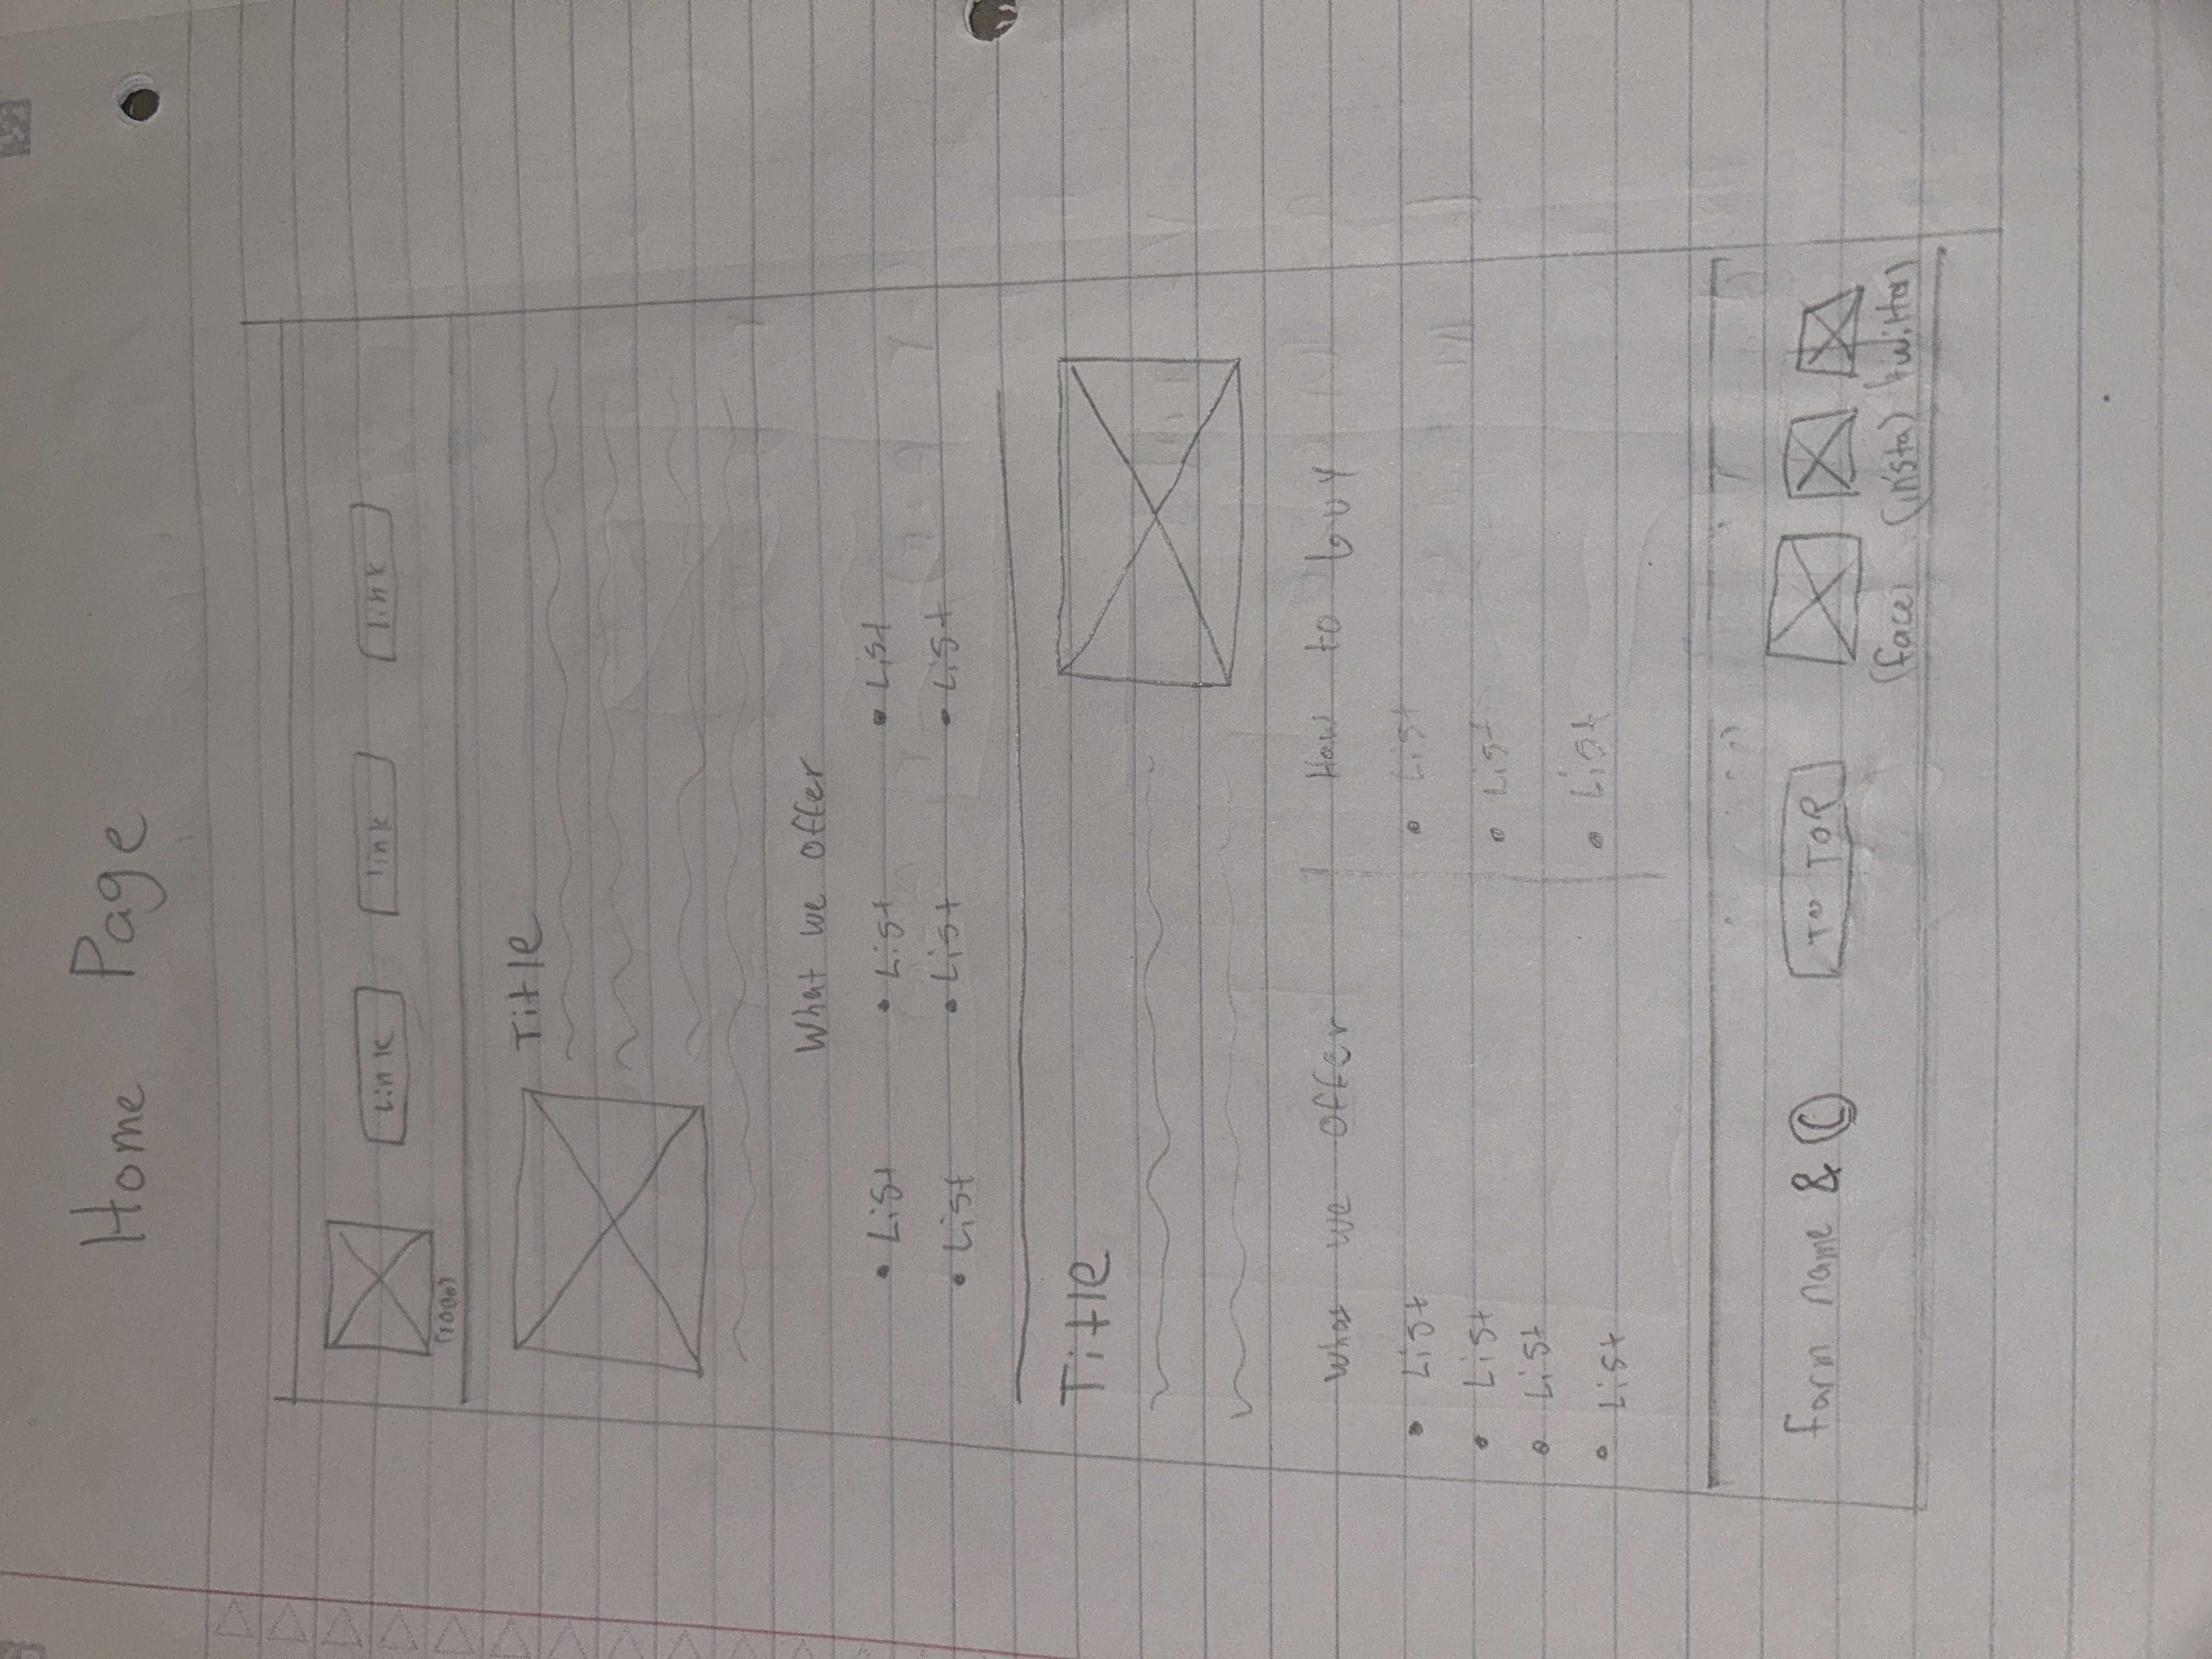 Home Page
Link link link
(logo)
Title
What we offer
• List • List • List
• List • List • List
Title
What we offer How to buy
• List • List
• List • List
• List
• List • List
farm name & © TO TOP
(face) (insta) (twitter)